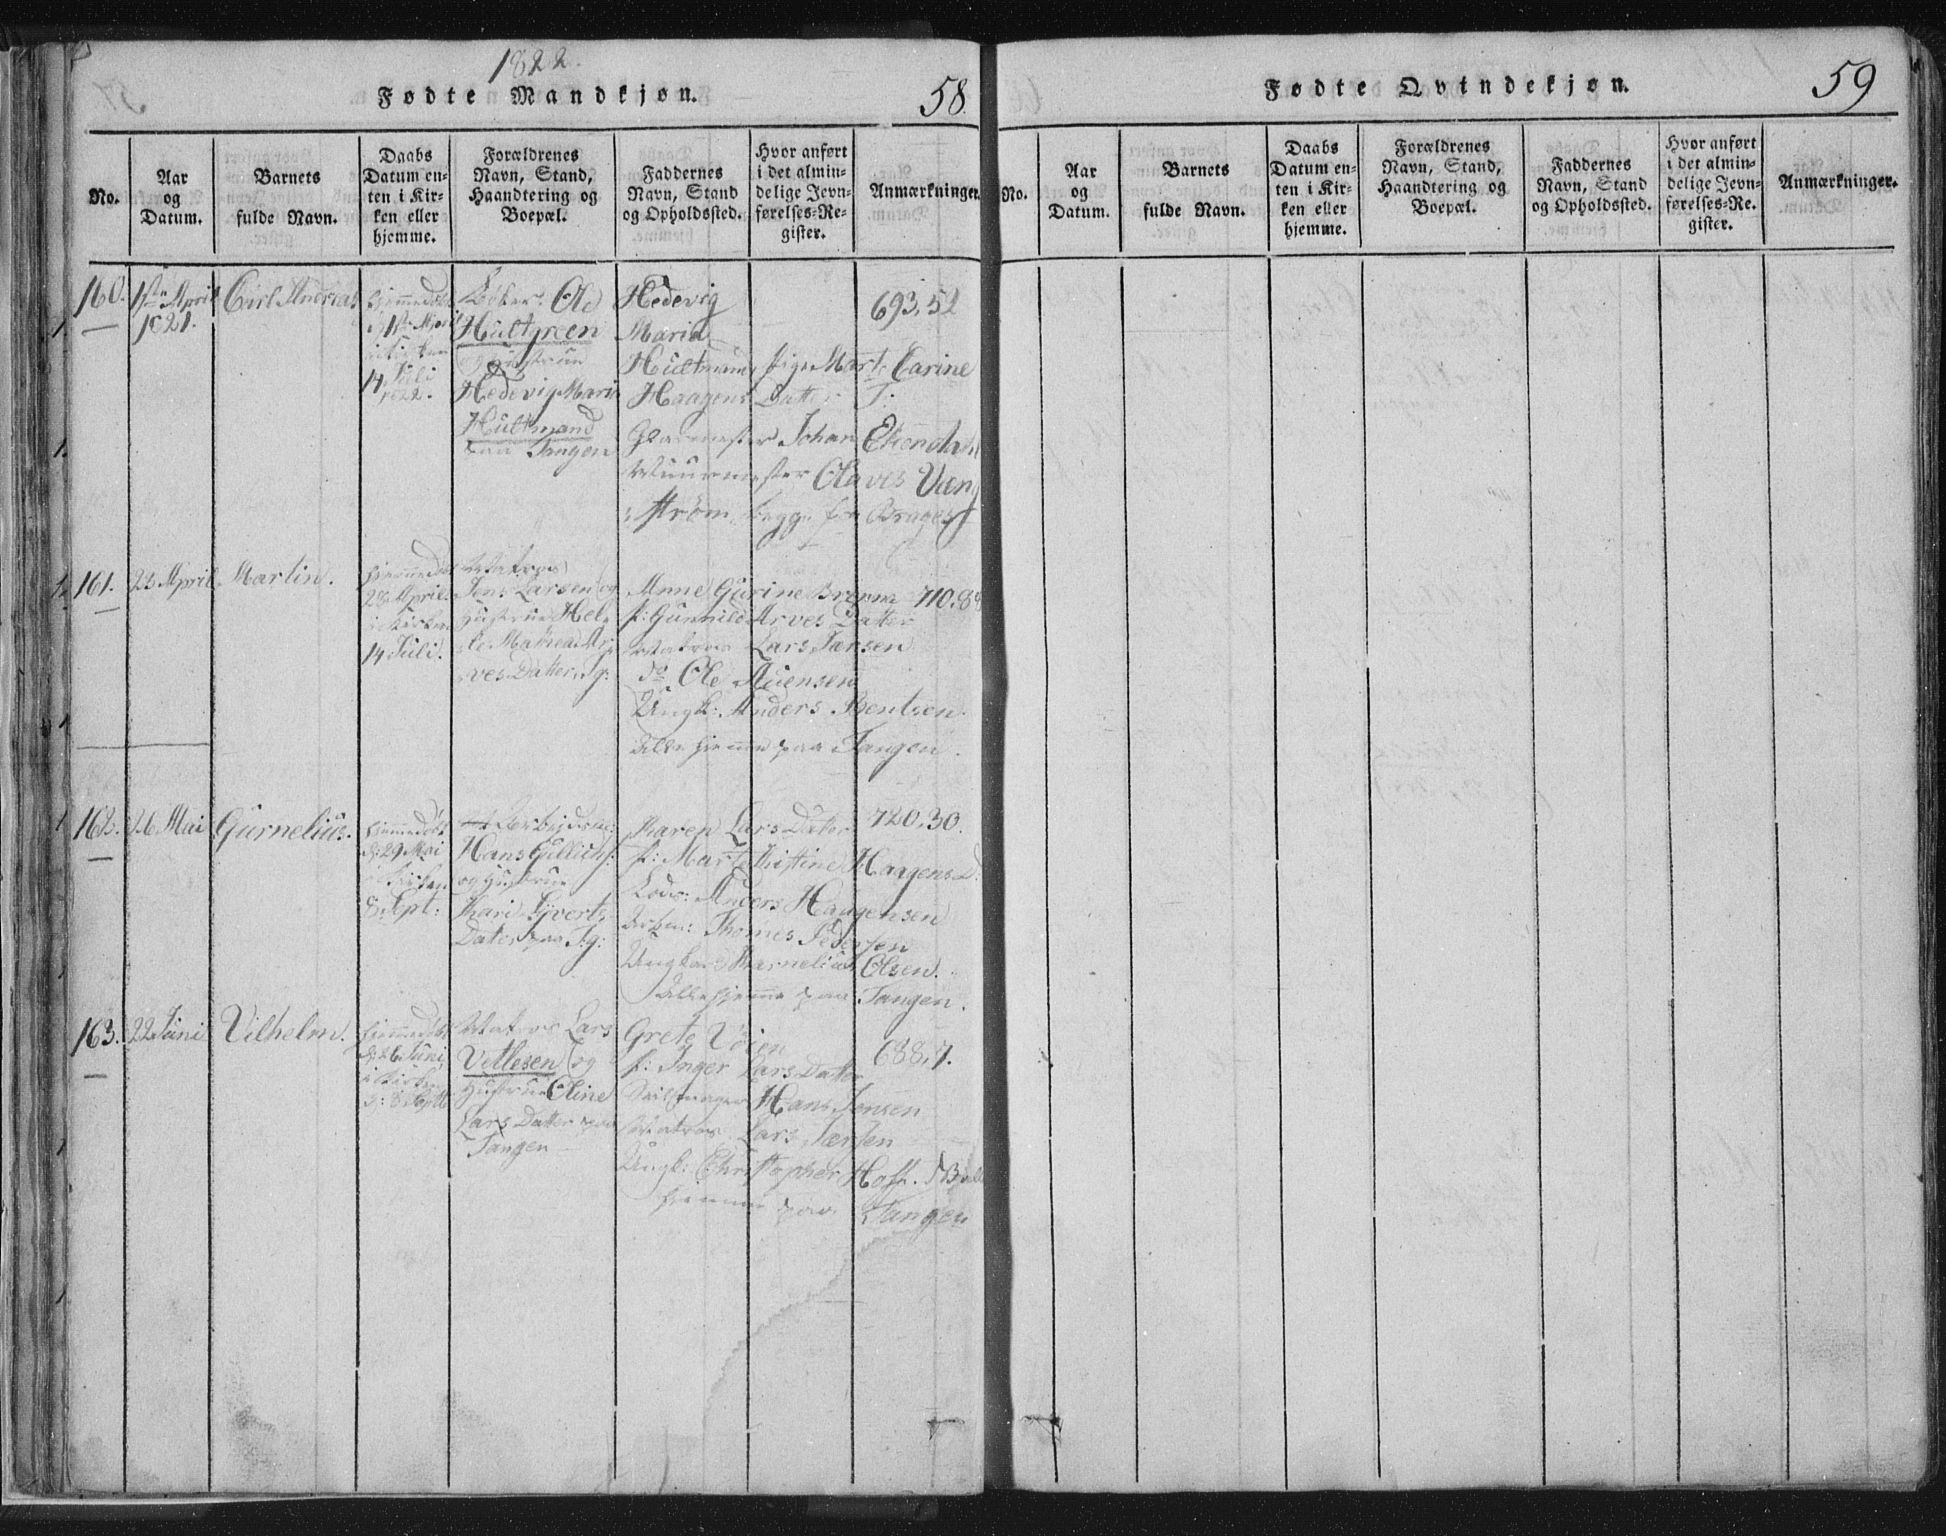 1822.
Fødte Mandkjøn.
58.
No.
Aar
og
Datum.
Barnets
fulde Navn.
Daabs
Datum en-
ten i Kir-
ken eller
hjemme.
Forældrenes
Navn, Stand,
Haandtering og
Boepæl.
Faddernes
Navn, Stand
og Opholdssted.
Hvor anført
i det almin-
delige Jevn-
førelses-Re-
gister.
Anmærkninger.
160.
1ste April
1821.
Carl Andreas
hjemmedøbt
d: 1ste April
i Kirken
14 Juli
1822.
Ole
Hultgreen
og Hustrue
Hedevig Maria
Hultmand
paa Tangen
Hedevig
Maria
Hultmann, pige Mart. Carine
Haagens Datter T:
Glasmester Johan Ekendahl
Muurmester Olaves Van
strøm, begge fra Brages
693,52
161.
23 April
Martin.
hjemmedøbt
28 April
i Kirken
14 Juli.
Matros
Jens Larsen og
Hustrue Hel
le Mathea Ar
ves Datter, Tg:
Anne Gurine
p: Gunnild Arves Datter
Matros Lars Larsen
do Ole
Ungk: Anders Bentsen
Alle hjemme paa Tangen.
710.8
162.
26 Mai
Gurnelius.
hjemmedøbt
d: 29 Mai
i Kirken
8 Sept:
Hans Gullichs:
og Hustrue
Kari Sjverts
Datter paa Tg:
Karen Lars Datter
p: Marte Kistine Haagens D:
Lods: Anders Haagensen
Thomes Pedersen
Ungkar: Karnelius Olsen.
Alle hjemme paa Tangen.
720,30.
163.
22 Juni
Vilhelm.
hjemmedøbt
d: 26 Juni
i Kirken
d: 8 Septb
Matros Lars
Vetlesen og
Hustrue Oline
Lars Datter paa
Tangen
Grete Vøien
p: Inger Lars Datter
Seilmager Hans Jensen
Matros Lars Larsen
Ungk: Christopher Hoff.
hjemme paa Tangen
688,7.
Fødte Qvindekjøn.
59
No.
Aar
og
Datum.
Barnets
fulde Navn.
Daabs
Datum en-
ten i Kir-
ken eller
hjemme.
Forældrenes
Navn, Stand,
Haandtering og
Boepæl.
Faddernes
Navn, Stand
og Opholdssted.
Hvor anført
i det almin-
delige Jevn-
førelses-Re-
gister.
Anmærkninger.